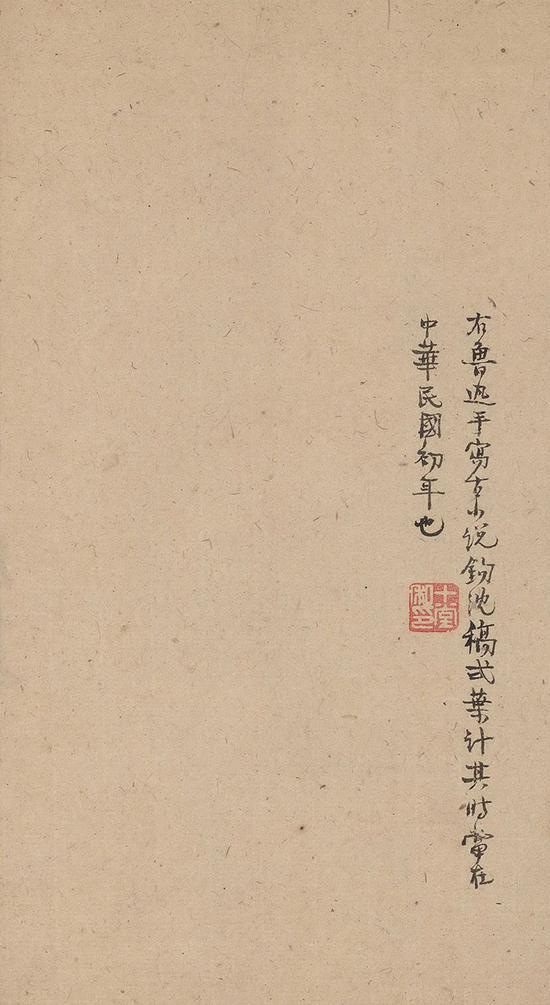 右魯迅手寫古小説鈎沈稿弍葉計其時當在
中華民國初年也
十堂